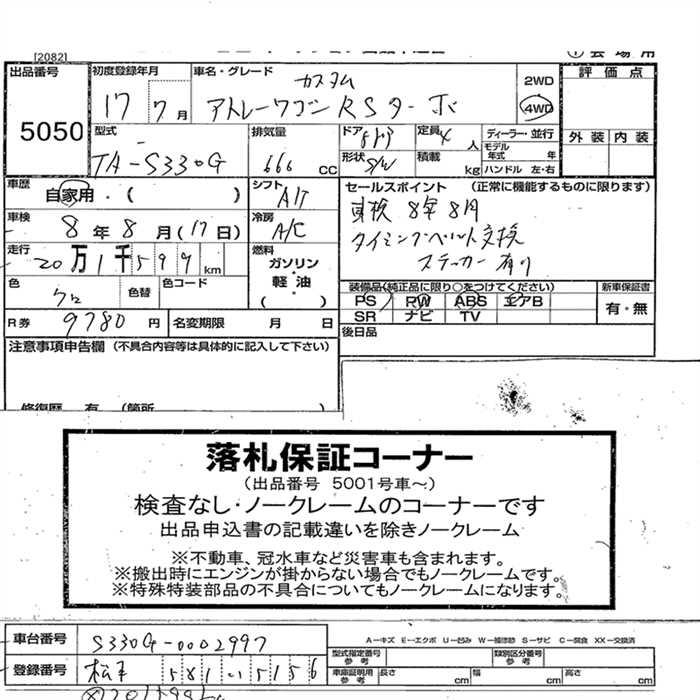 [2082]
出品番号
5050
初度登録年月
17 7 月
車名・グレード
カスタム
アトレーワゴン RSターボ
2WD
4WD
評価点
外装 内装
型式
TA-S330G
排気量
666 cc
ドア
形状
定員 4 人
積載 kg
ディーラー・並行
モデル年式 年
ハンドル 左・右
車歴
自家用・( )
シフト
A/T
セールスポイント (正常に機能するものに限ります)
車検 8年8月
タイミングベルト交換
ステッカー有り
車検
8 年 8 月 (17日)
冷房
A/C
走行
20 万 1 千 5 9 9 km
燃料
ガソリン
・
軽油
( )
色
クロ
色替
色コード
装備品(純正品に限り○をつけてください)
PS PW ABS エアB
SR ナビ TV
新車保証書
有・無
R券 9780 円
名変期限 月 日
後日品
注意事項申告欄 (不具合内容等は具体的に記入して下さい)
修復歴 有 (箇所
落札保証コーナー
(出品番号 5001号車～)
検査なし・ノークレームのコーナーです
出品申込書の記載違いを除きノークレーム
※不動車、冠水車など災害車も含まれます。
※搬出時にエンジンが掛からない場合でもノークレームです。
※特殊特装部品の不具合についてもノークレームになります。
車台番号 S330G-0002997
登録番号 松本 581 い 5156
A－キズ E－エクボ U－凹み W－補修跡 S－サビ C－腐食 XX－交換済
型式指定番号 参考
類別区分番号 参考
車庫証明用 参考 長さ cm 幅 cm 高さ cm